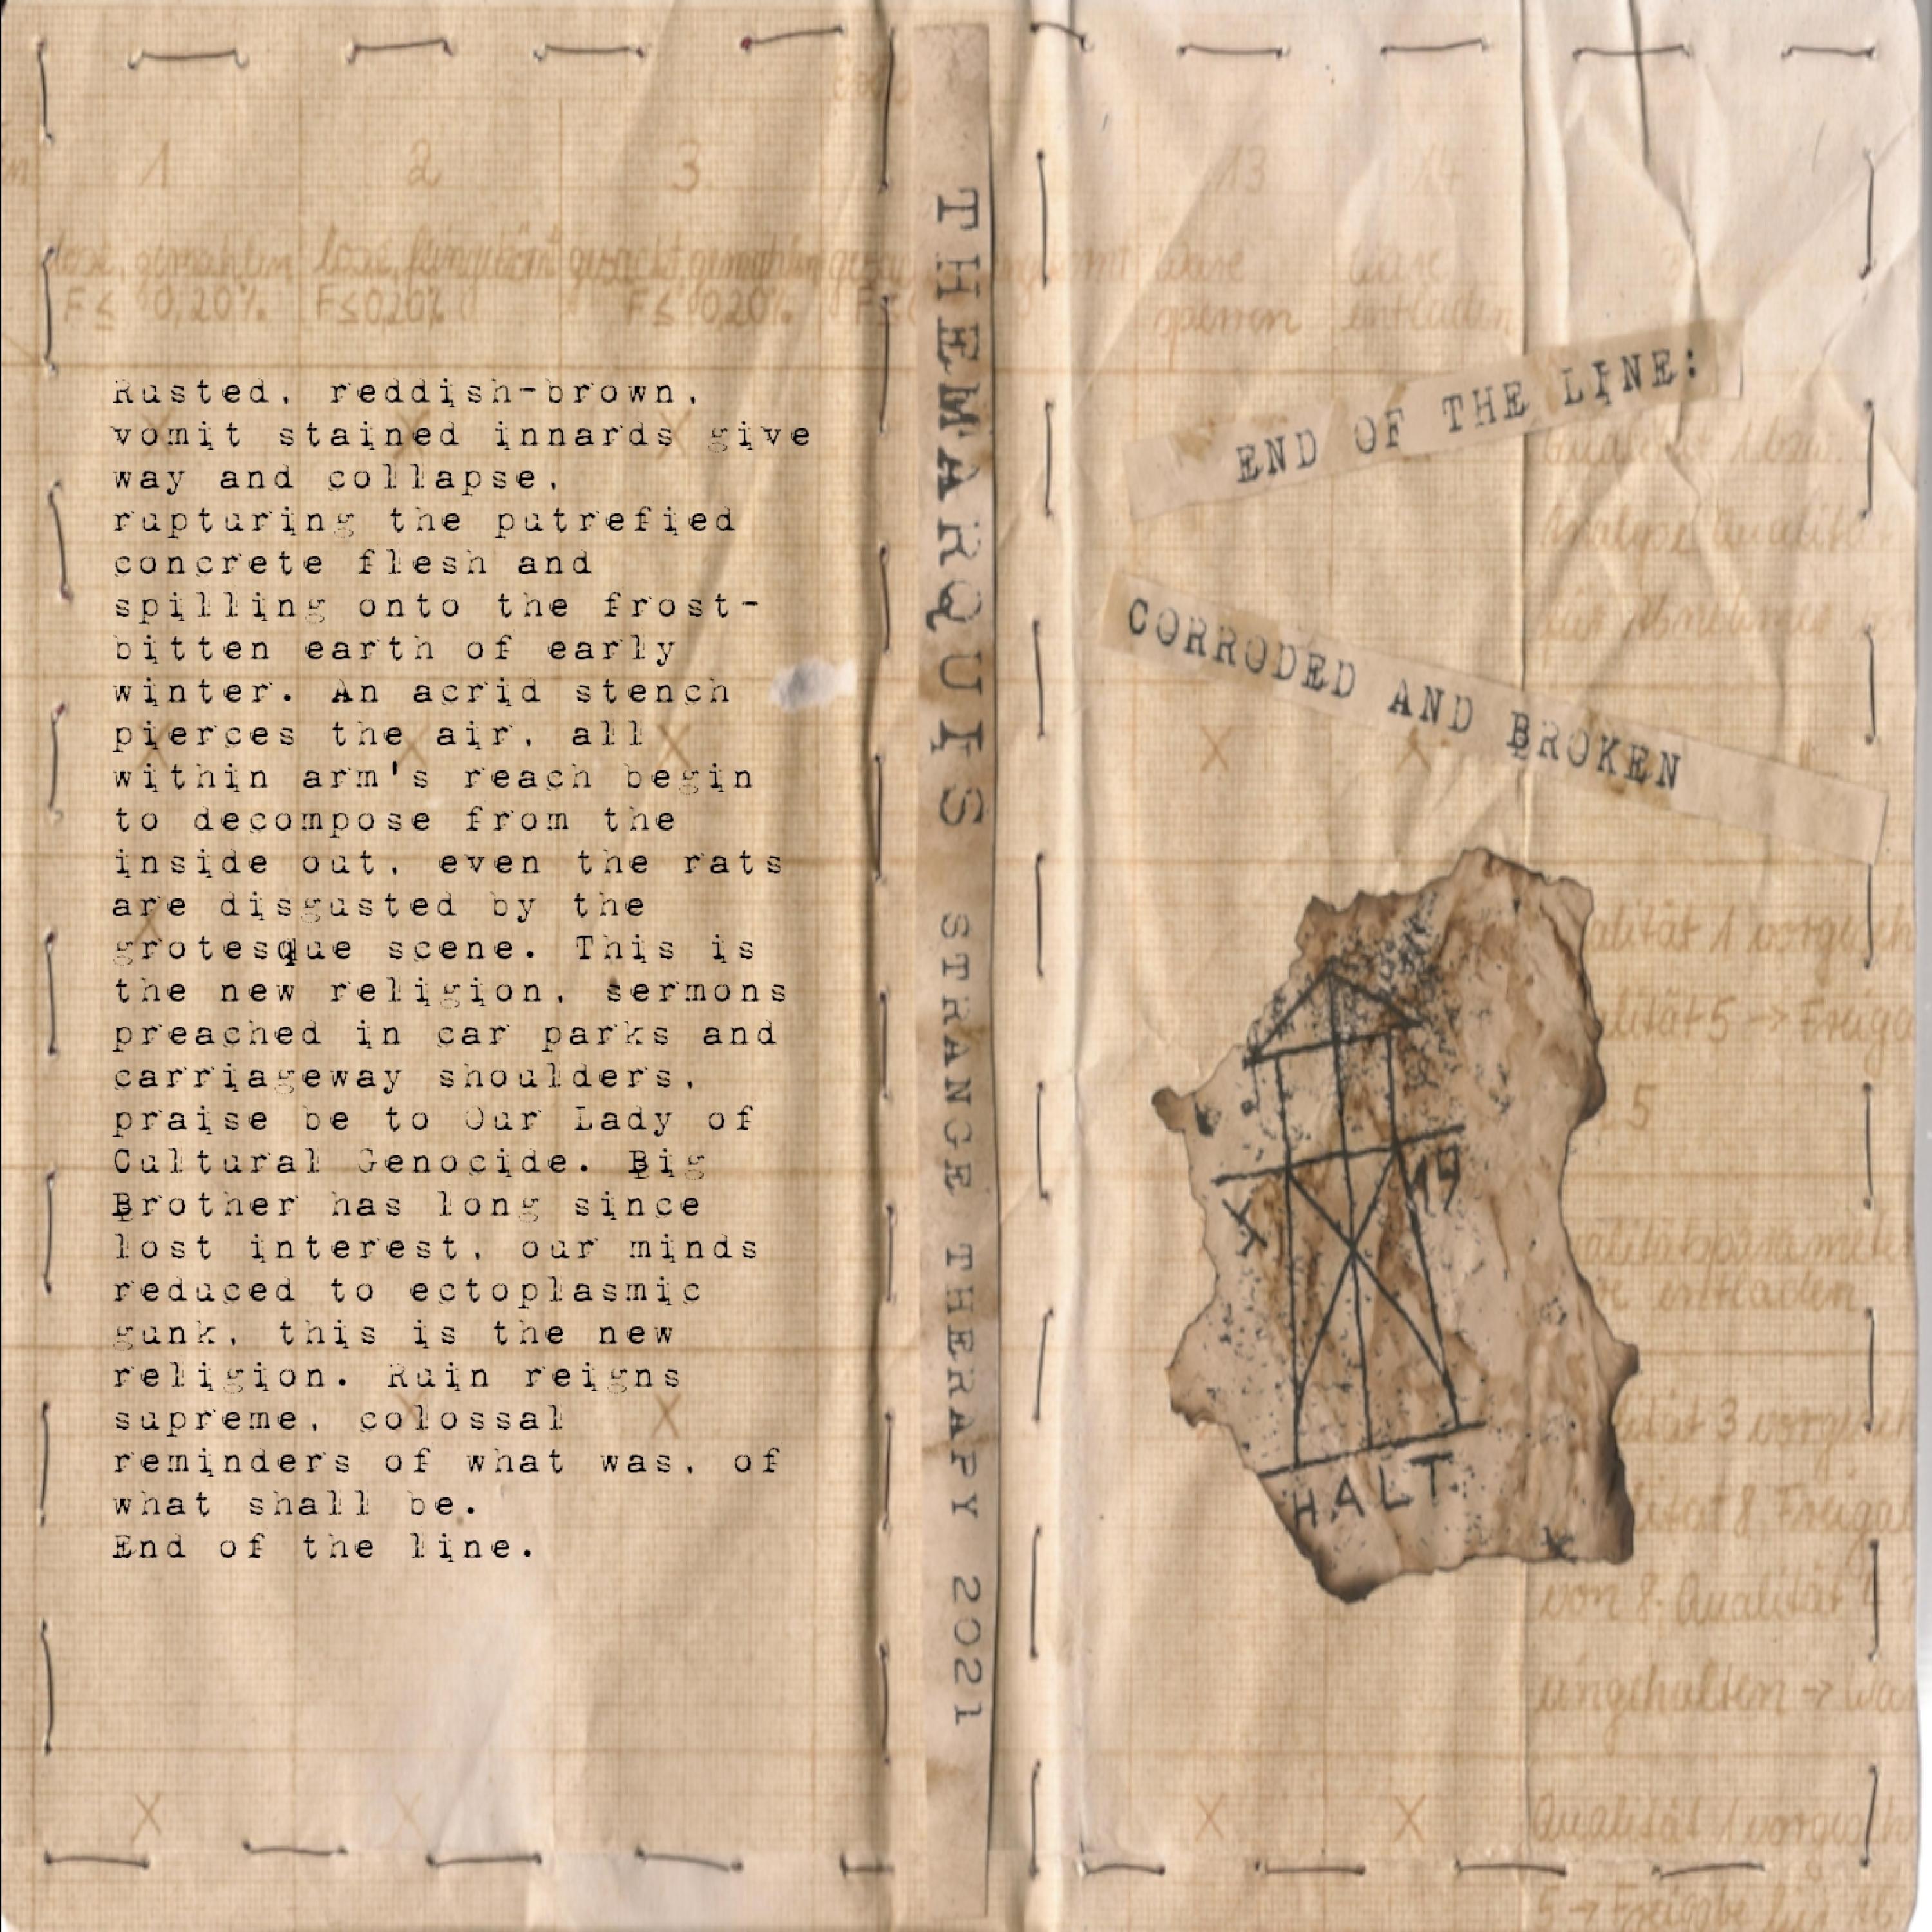 1
2
3
F ≤ 0,20%
F ≤ 0,20%
F ≤ 0,20%
Rusted, reddish-brown,
vomit stained innards give
way and collapse,
rupturing the putrefied
concrete flesh and
spilling onto the frost-
bitten earth of early
winter. An acrid stench
pierces the air, all
within arm's reach begin
to decompose from the
inside out, even the rats
are disgusted by the
grotesque scene. This is
the new religion, sermons
preached in car parks and
carriageway shoulders,
praise be to Our Lady of
Cultural Genocide. Big
Brother has long since
lost interest, our minds
reduced to ectoplasmic
gunk, this is the new
religion. Ruin reigns
supreme, colossal
reminders of what was, of
what shall be.
End of the line.
THE MARQUIS STRANGE THERAPY 2021
13 14
sperren entladen
END OF THE LINE:
CORRODED AND BROKEN
19
HALT
5
entladen
von 8. Qualität
Qualität 1